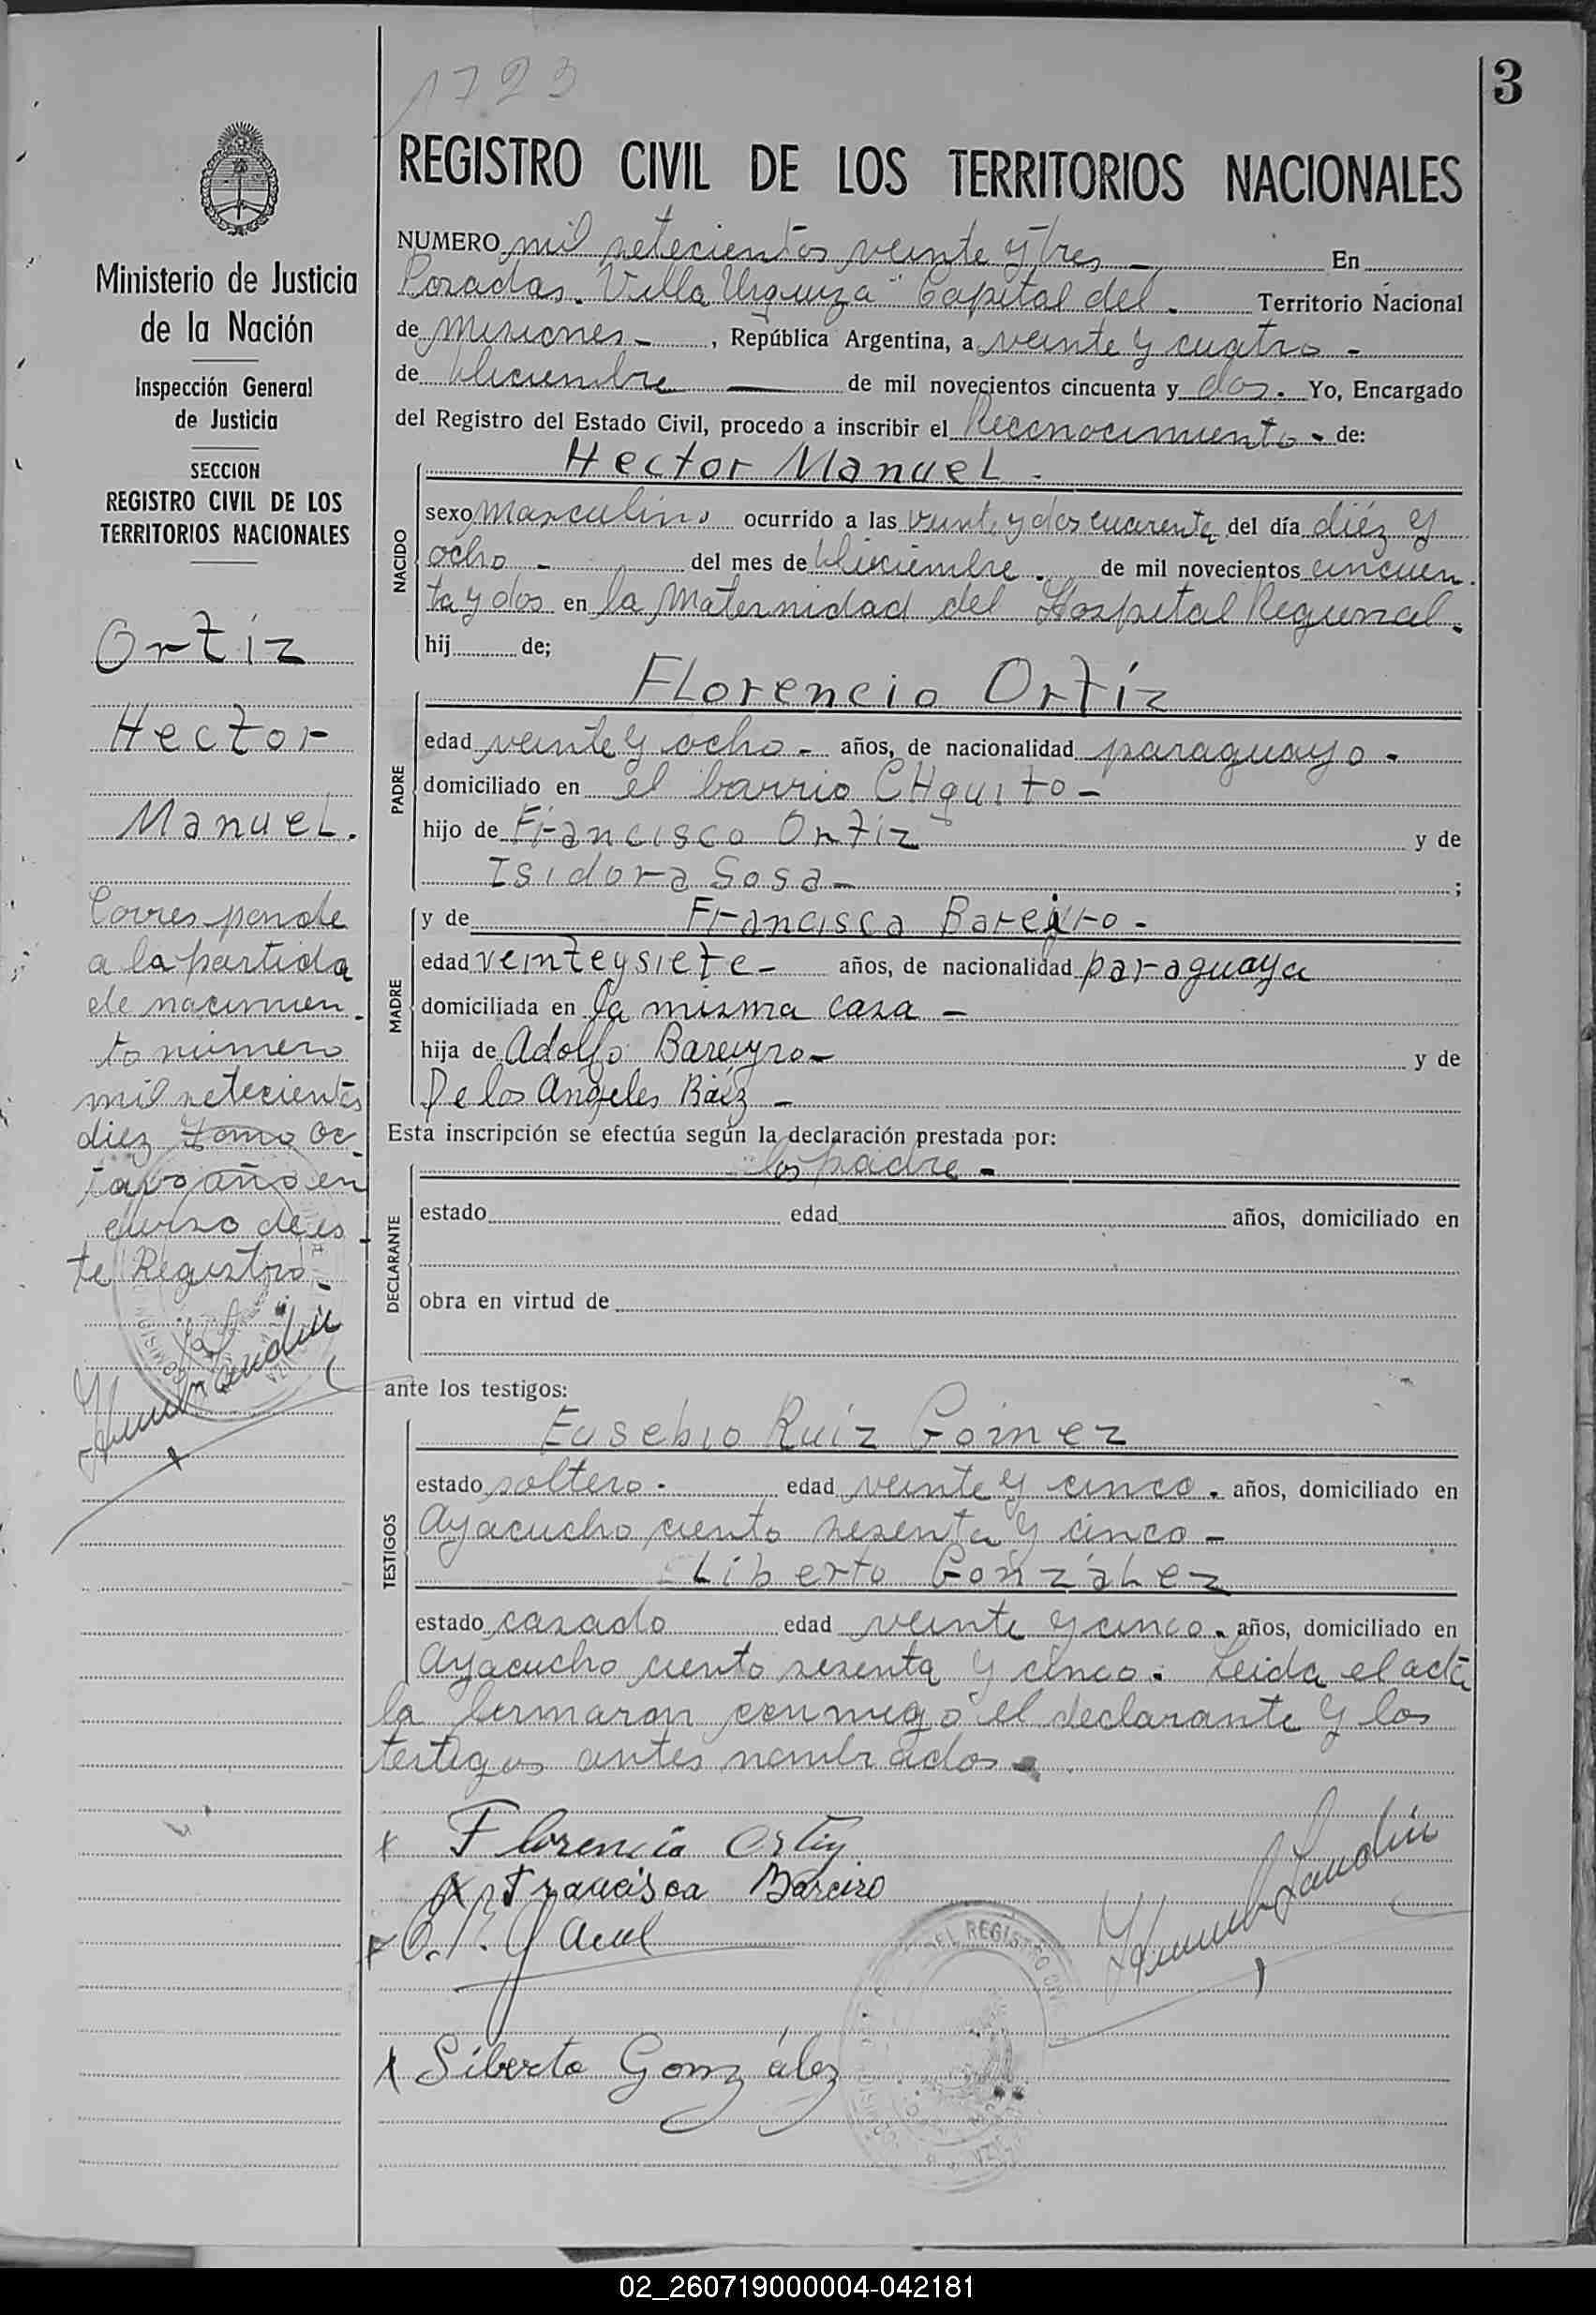 1723
3
REGISTRO CIVIL DE LOS TERRITORIOS NACIONALES
NUMERO mil setecientos veinte y tres — En
Posadas. "Villa Urquiza" Capital del. Territorio Nacional
de Misiones - , República Argentina, a veinte y cuatro -
de Diciembre — de mil novecientos cincuenta y dos. Yo, Encargado
del Registro del Estado Civil, procedo a inscribir el Reconocimiento - de:
NACIDO
Hector Manuel -
sexo masculino ocurrido a las veinte y dos cuarenta del día diéz y
ocho - del mes de Diciembre. de mil novecientos cincuen-
ta y dos en la Maternidad del Hospital Regional.
hij de;
PADRE
Florencio Ortíz
edad veinte y ocho - años, de nacionalidad paraguayo -
domiciliado en el barrio CHquito -
hijo de Francisco Ortiz y de
Isidora Sosa - ;
MADRE
y de Francisca Bareiro -
edad veinteysiete - años, de nacionalidad paraguaya
domiciliada en la misma casa -
hija de Adolfo Bareyro - y de
De los Angeles Báez -
Esta inscripción se efectúa según la declaración prestada por:
DECLARANTE
los padre -
estado edad años, domiciliado en
obra en virtud de
ante los testigos:
TESTIGOS
Eusebio Ruiz Gómez
estado soltero - edad veinte y cinco. años, domiciliado en
Ayacucho ciento sesenta y cinco -
Liberto González
estado casado edad veinte y cinco. años, domiciliado en
Ayacucho ciento sesenta y cinco. Leida el acta
la firmaron conmigo el declarante y los
testigos antes nombrados -
x Florencio Ortiz
x Francisca Bareiro
x Liberto González
Ministerio de Justicia
de la Nación
Inspección General
de Justicia
SECCION
REGISTRO CIVIL DE LOS
TERRITORIOS NACIONALES
Ortiz
Hector
Manuel.
Corresponde
a la partida
de nacimien-
to número
mil setecientos
diez tomo oc-
tavo año en
curso de es-
te Registro -
02_260719000004-042181